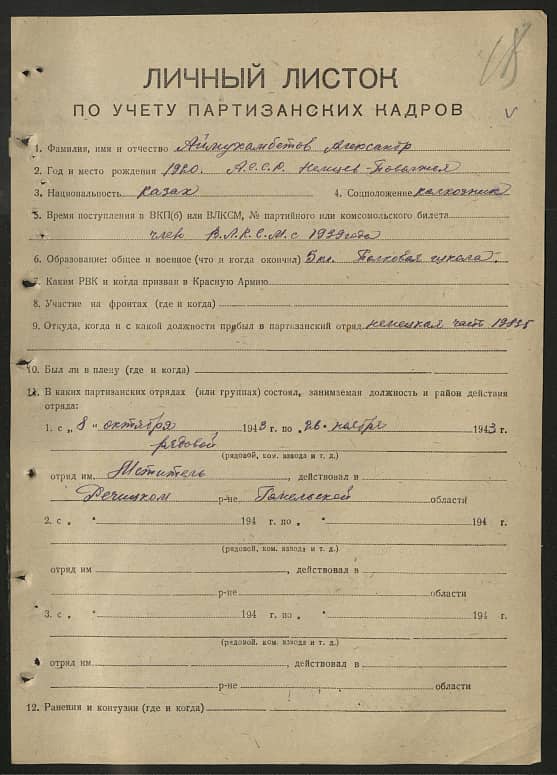 ЛИЧНЫЙ ЛИСТОК
ПО УЧЕТУ ПАРТИЗАНСКИХ КАДРОВ
1. Фамилия, имя и отчество Аймухамбетов Александр
2. Год и место рождения 1920. А.С.С.Р. Немцев-Поволжья
3. Национальность казах 4. Соцположение колхозник
5. Время поступления в ВКП(б) или ВЛКСМ, № партийного или комсомольского билета
член В.Л.К.С.М. с 1939 года
6. Образование: общее и военное (что и когда окончил) 5 кл. Полковая школа.
7. Каким РВК и когда призван в Красную Армию
8. Участие на фронтах (где и когда)
9. Откуда, когда и с какой должности прибыл в партизанский отряд немецкая часть
10. Был ли в плену (где и когда)
11. В каких партизанских отрядах (или группах) состоял, занимаемая должность и район действия
отряда:
1. с „8" октября 1943 г. по „26" ноября 1943 г.
рядовой
(рядовой, ком. взвода и т. д.)
отряд им. Мститель, действовал в
Речицком р-не Гомельской области
2. с „ " 194 г. по „ " 194 г.
(рядовой, ком. взвода и т. д.)
отряд им , действовал в
р-не области
3. с „ " 194 г. по „ " 194 г.
(рядовой, ком. взвода и т. д.)
отряд им. , действовал в
р-не области
12. Ранения и контузии (где и когда)